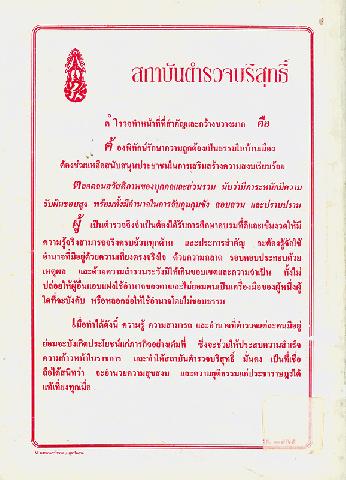 สถาบันตำรวจบริสุทธิ์
ตำรวจทำหน้าที่ที่สำคัญและกว้างขวางมาก คือ
ต้องพิทักษ์รักษาความถูกต้องเป็นธรรมในบ้านเมือง
ต้องช่วยเหลือสนับสนุนประชาชนในการเสริมสร้างความสงบเรียบร้อย
ทั้ง สวัสดิภาพของบุคคลและส่วนรวม นับว่ามีภาระหนักมีความ
รับผิดชอบสูง พร้อมทั้งมีอำนาจในการจับกุมคุมขัง สอบสวน และปราบปราม
ผู้ เป็นตำรวจจึงจำเป็นต้องได้รับการฝึกฝนอบรมที่ดีและเข้มงวดให้มี
ความรู้จริงสามารถจริงครบถ้วนทุกด้าน และประการสำคัญ จะต้องรู้จักใช้
อำนาจที่มีอยู่ด้วยความเที่ยงตรงจริงใจ ด้วยความฉลาด รอบคอบประกอบด้วย
เหตุผล และด้วยความสำรวมระวังมิให้เกินขอบเขตและความจำเป็น ทั้งไม่
ปล่อยให้ผู้อื่นแอบแฝงใช้อำนาจของตนและไม่ยอมตนเป็นเครื่องมือของผู้หนึ่งผู้
ใดที่จะบังคับ หรือหลอกล่อให้ใช้อำนาจโดยไม่ชอบธรรม
เมื่อทำได้ดังนี้ ความรู้ ความสามารถ และอำนาจที่ตำรวจแต่ละคนมีอยู่
ย่อมจะบังเกิดประโยชน์แก่ภารกิจอย่างเต็มที่ ซึ่งจะช่วยให้ประสบความสำเร็จ
ความก้าวหน้าในราชการ และทำให้สถาบันตำรวจบริสุทธิ์ มั่นคง เป็นที่เชื่อ
ถือได้สนิทว่า จะอำนวยความสุขสงบ และความยุติธรรมแก่ประชาราษฎร์ได้
แท้เที่ยงทุกเมื่อ